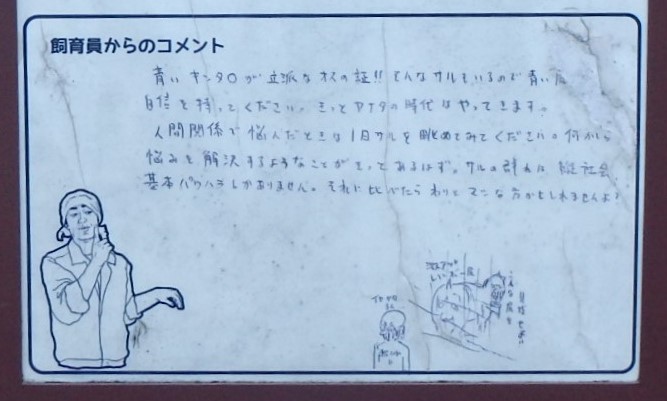 飼育員からのコメント
青いキンタ〇が立派なオスの証!! そんなサルもいるので青い
自信を持ってください。きっとアナタの時代はやってきます。
人間関係で悩んだときは1日サルを眺めてみてください。何かしら
悩みを解決するようなことがきっとあるはず。サルの群れは、縦社会。
基本パワハラしかありません。それに比べたらわりとマシな方かもしれませんよ?